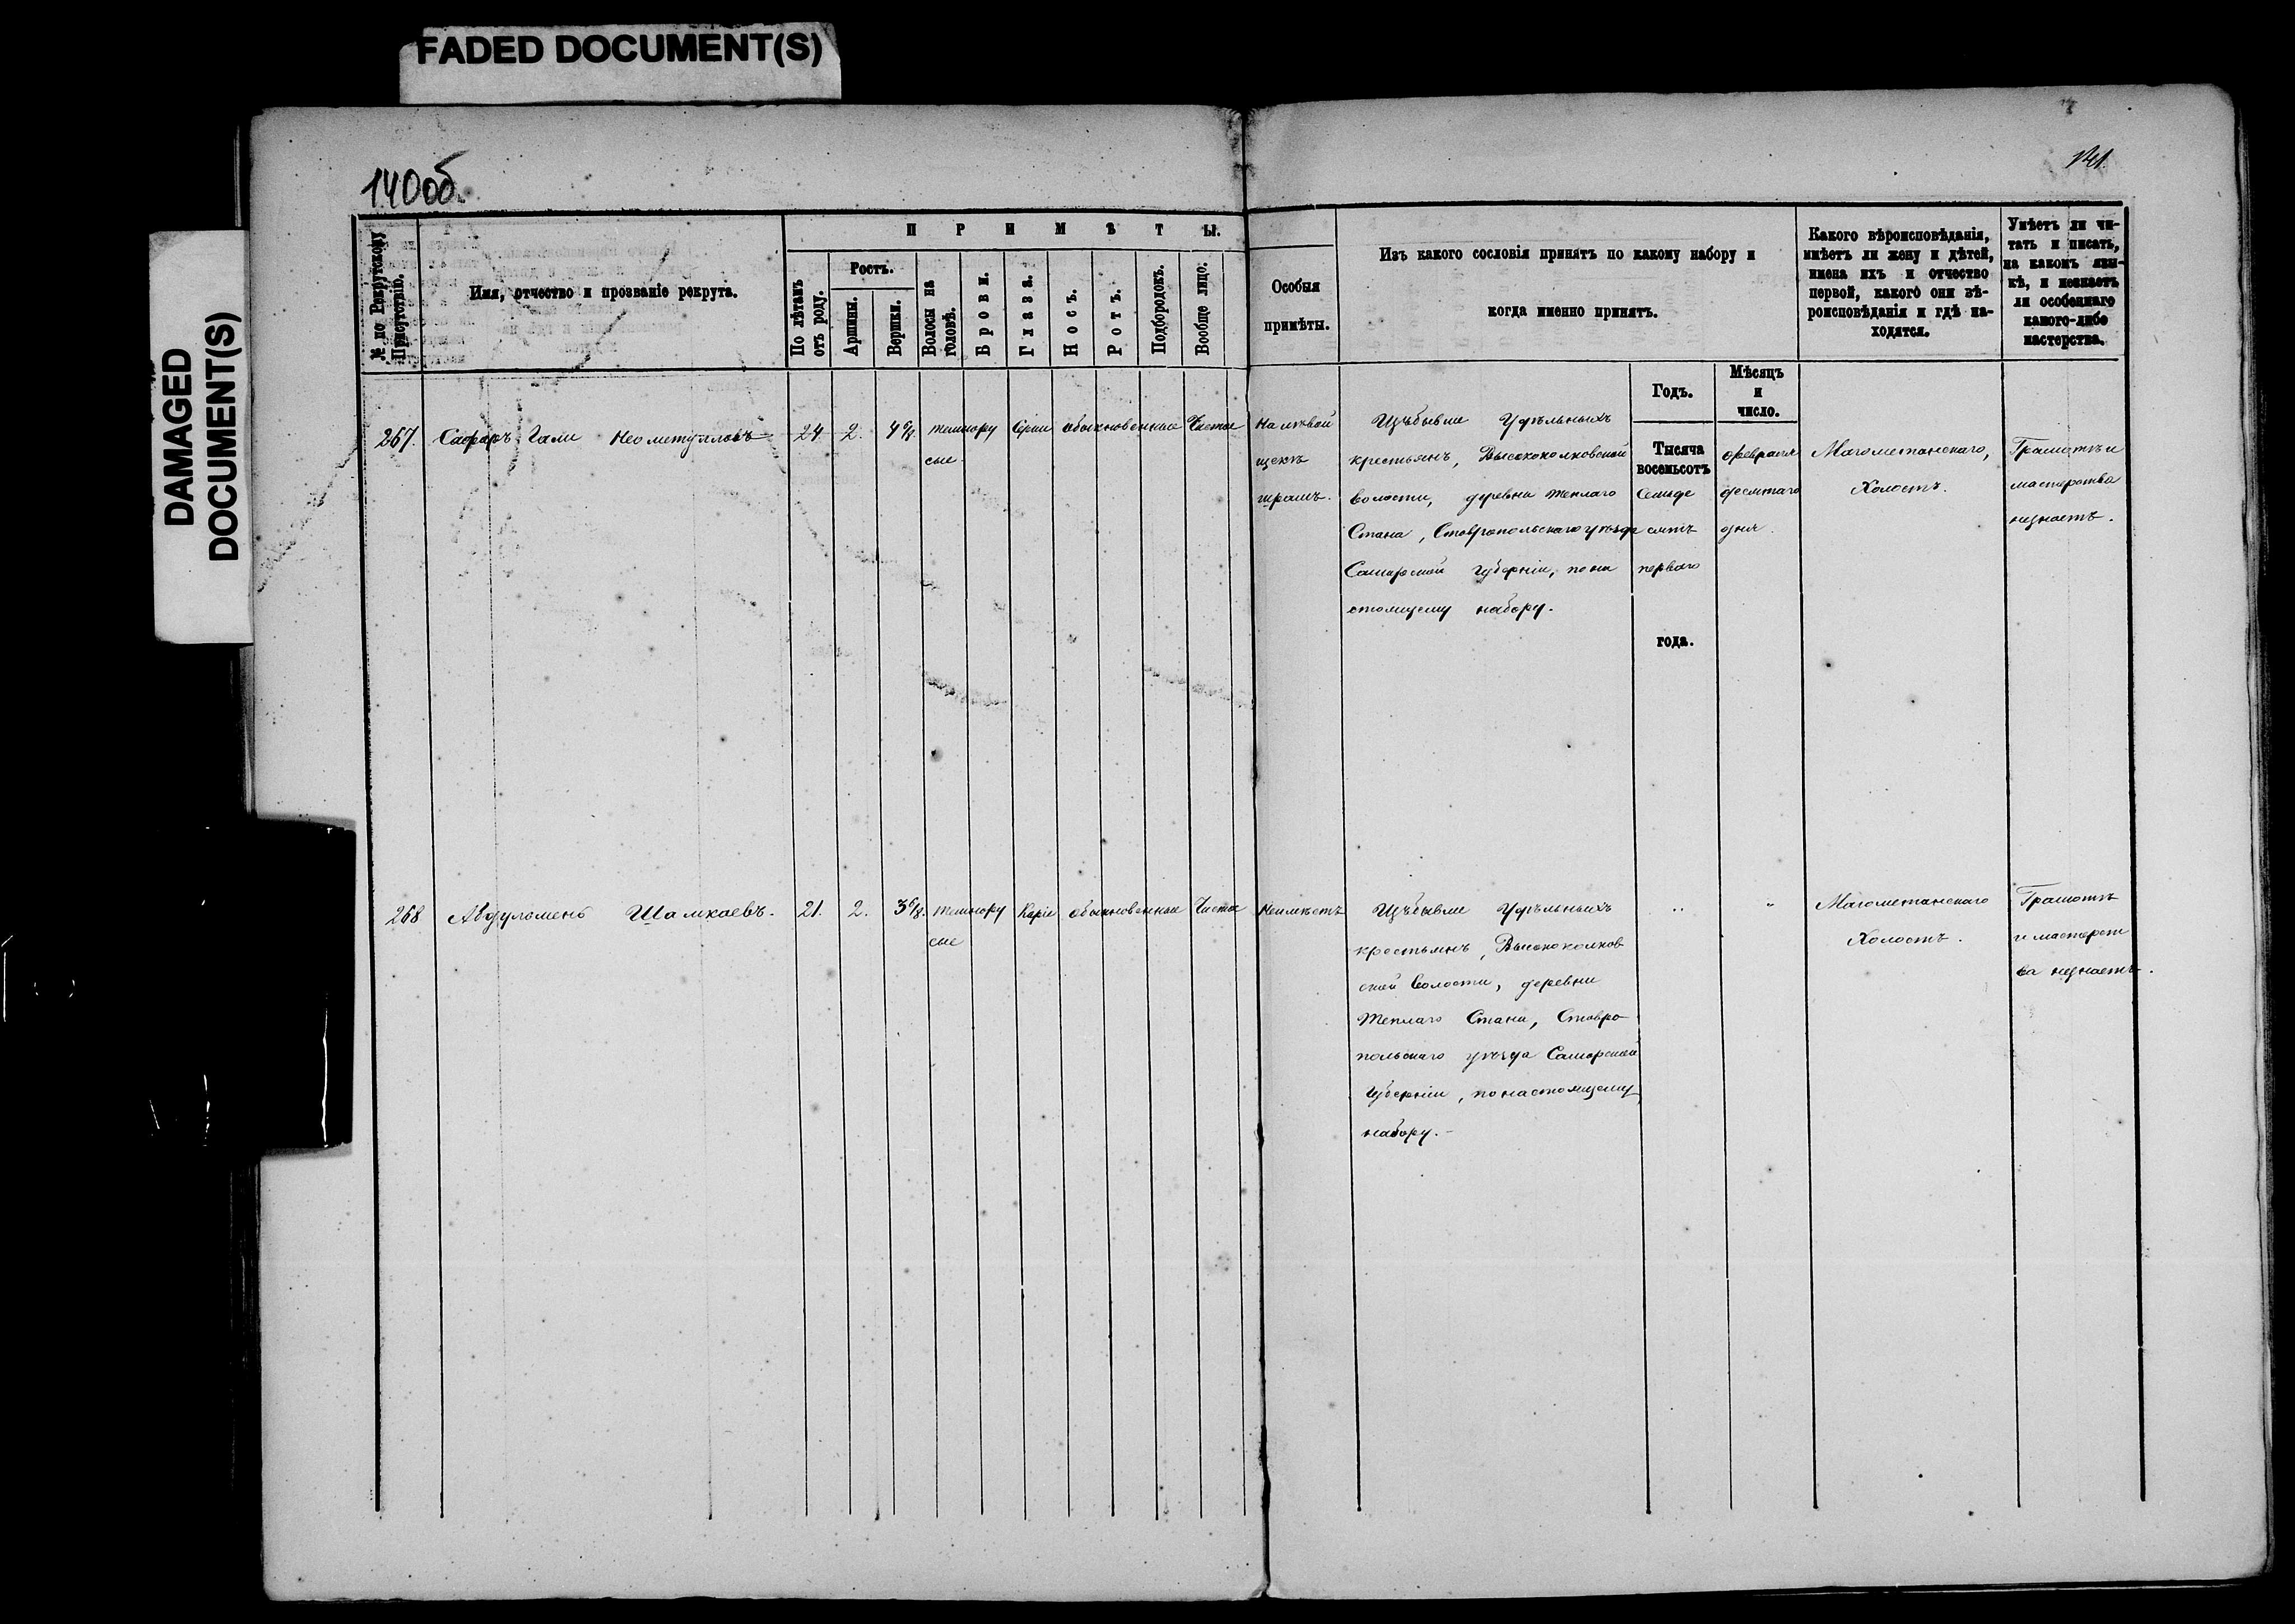 FADED DOCUMENT(S)
DAMAGED
DOCUMENT(S)
140об.
141.
№ по Рекрутскому
Присутствію.
Имя, отчество и прозваніе рекрута.
П Р И М Ѣ Т Ы.
По лѣтамъ
отъ роду.
Ростъ.
Аршины.
Вершки.
Волосы на
головѣ.
Брови.
Глаза.
Носъ.
Ротъ.
Подбородокъ.
Вообще лицо.
Особыя
примѣты.
Изъ какого сословія принятъ по какому набору и
когда именно принятъ.
Какого вѣроисповѣданія,
имѣетъ ли жену и дѣтей,
имена ихъ и отчество
первой, какого они вѣ-
роисповѣданія и гдѣ на-
ходятся.
Умѣетъ ли чи-
тать и писать,
на какомъ язы-
кѣ, и незнаетъ
ли особеннаго
какого-либо
мастерства.
Годъ.
Мѣсяцъ
и
число.
267.
Сафаръ Гали Неометулловъ
24
2.
4
темнору
сые
Сѣрые
обыкновенные
Чистое
На лѣвой
щекѣ
шрамъ.
Изъ бывш. Удѣльныхъ
крестьянъ, Высококолковской
волости, деревни Теплаго
Стана, Ставропольскаго уѣзда
Самарской губерніи, по на
стоящему набору.
Тысяча
восемьсотъ
семьде
сятъ
перваго
года.
февраля
десятаго
дня.
Магометанскаго,
Холостъ.
Грамотѣ и
мастерства
незнаетъ.
268
Абдуломенъ Шамкаевъ.
21.
2.
3 6/8.
темнору
сые
Каріе
обыкновенные
Чистое
Неимѣетъ
Изъ бывш. Удѣльныхъ
крестьянъ, Высококолков
ской волости, деревни
Теплаго Стана, Ставро
польскаго уѣзда Самарской
губерніи, по настоящему
набору.-
"
"
Магометанскаго
Холостъ.
Грамотѣ
и мастерст
ва незнаетъ.